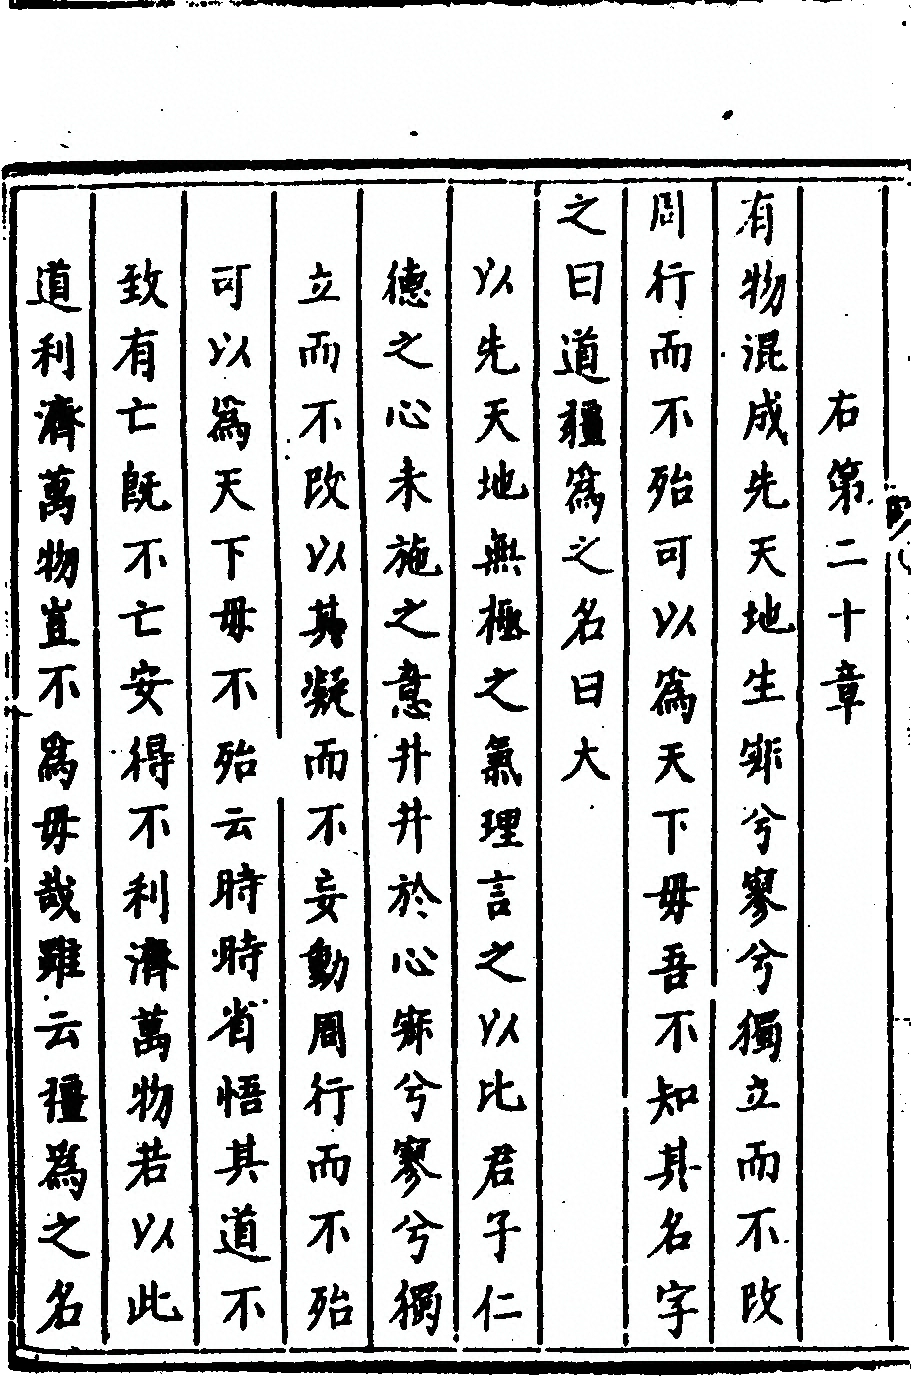 右第二十章
有物混成先天地生寂兮寥兮獨立而不改
周行而不殆可以為天下毋吾不知其名字
之曰道彊為之名曰大
以先天地無極之氣理言之以比君子仁
德之心未施之意井井於心寂兮寥兮獨
立而不改以其凝而不妄動周行而不殆
可以為天下毋不殆云時時省悟其道不
致有亡既不亡安得不利濟萬物若以此
道利濟萬物豈不為毋哉雖云彊為之名